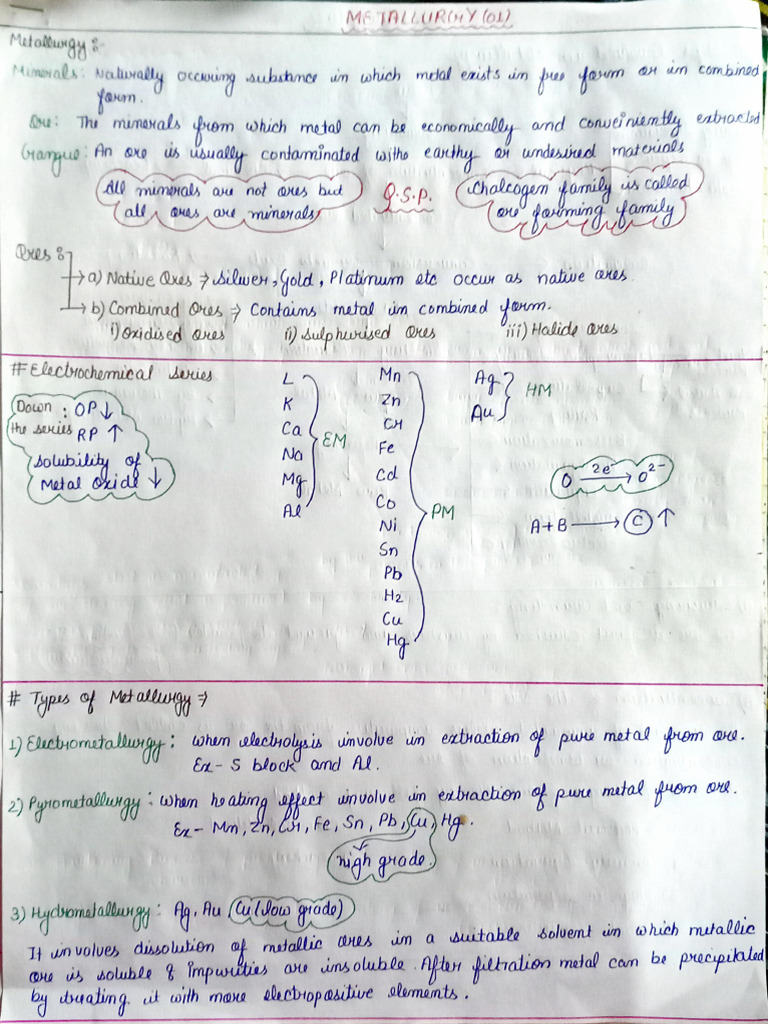 METALLURGY(01)
Metallurgy :-
Minerals: Naturally occuring substance in which metal exists in free form or in combined
form.
Ore: The minerals from which metal can be economically and conveiniently extracted
Gangue: An ore is usually contaminated withe earthy or undesired materials
All minerals are not ores but
all ores are minerals
O.S.P.
Chalcogen family is called
ore forming family
Ores :
a) Native Ores ⇒ Silver, Gold, Platinum etc occur as native ores.
b) Combined Ores ⇒ Contains metal in combined form.
i) Oxidised ores ii) Sulphurised Ores iii) Halide ores
# Electrochemical series
Down : OP ↓
the series RP ↑
Solubility of
Metal Oxide ↓
L
K
Ca
Na
Mg
Al
EM
Mn
Zn
Cr
Fe
Cd
Co
Ni
Sn
Pb
H2
Cu
Hg
PM
Ag
Au
HM
O 2e⁻ → O²⁻
A+B → C ↑
# Types of Metallurgy ⇒
1) Electrometallurgy : when electrolysis involve in extraction of pure metal from ore.
Ex- S block and Al.
2) Pyrometallurgy : when heating effect involve in extraction of pure metal from ore.
Ex- Mn, Zn, Cr, Fe, Sn, Pb, Cu, Hg.
high grade.
3) Hydrometallurgy : Ag, Au Cu(low grade)
It involves dissolution of metallic ores in a suitable solvent in which metallic
ore is soluble & impurities are insoluble. After filtration metal can be precipitated
by treating it with more electropositive elements.